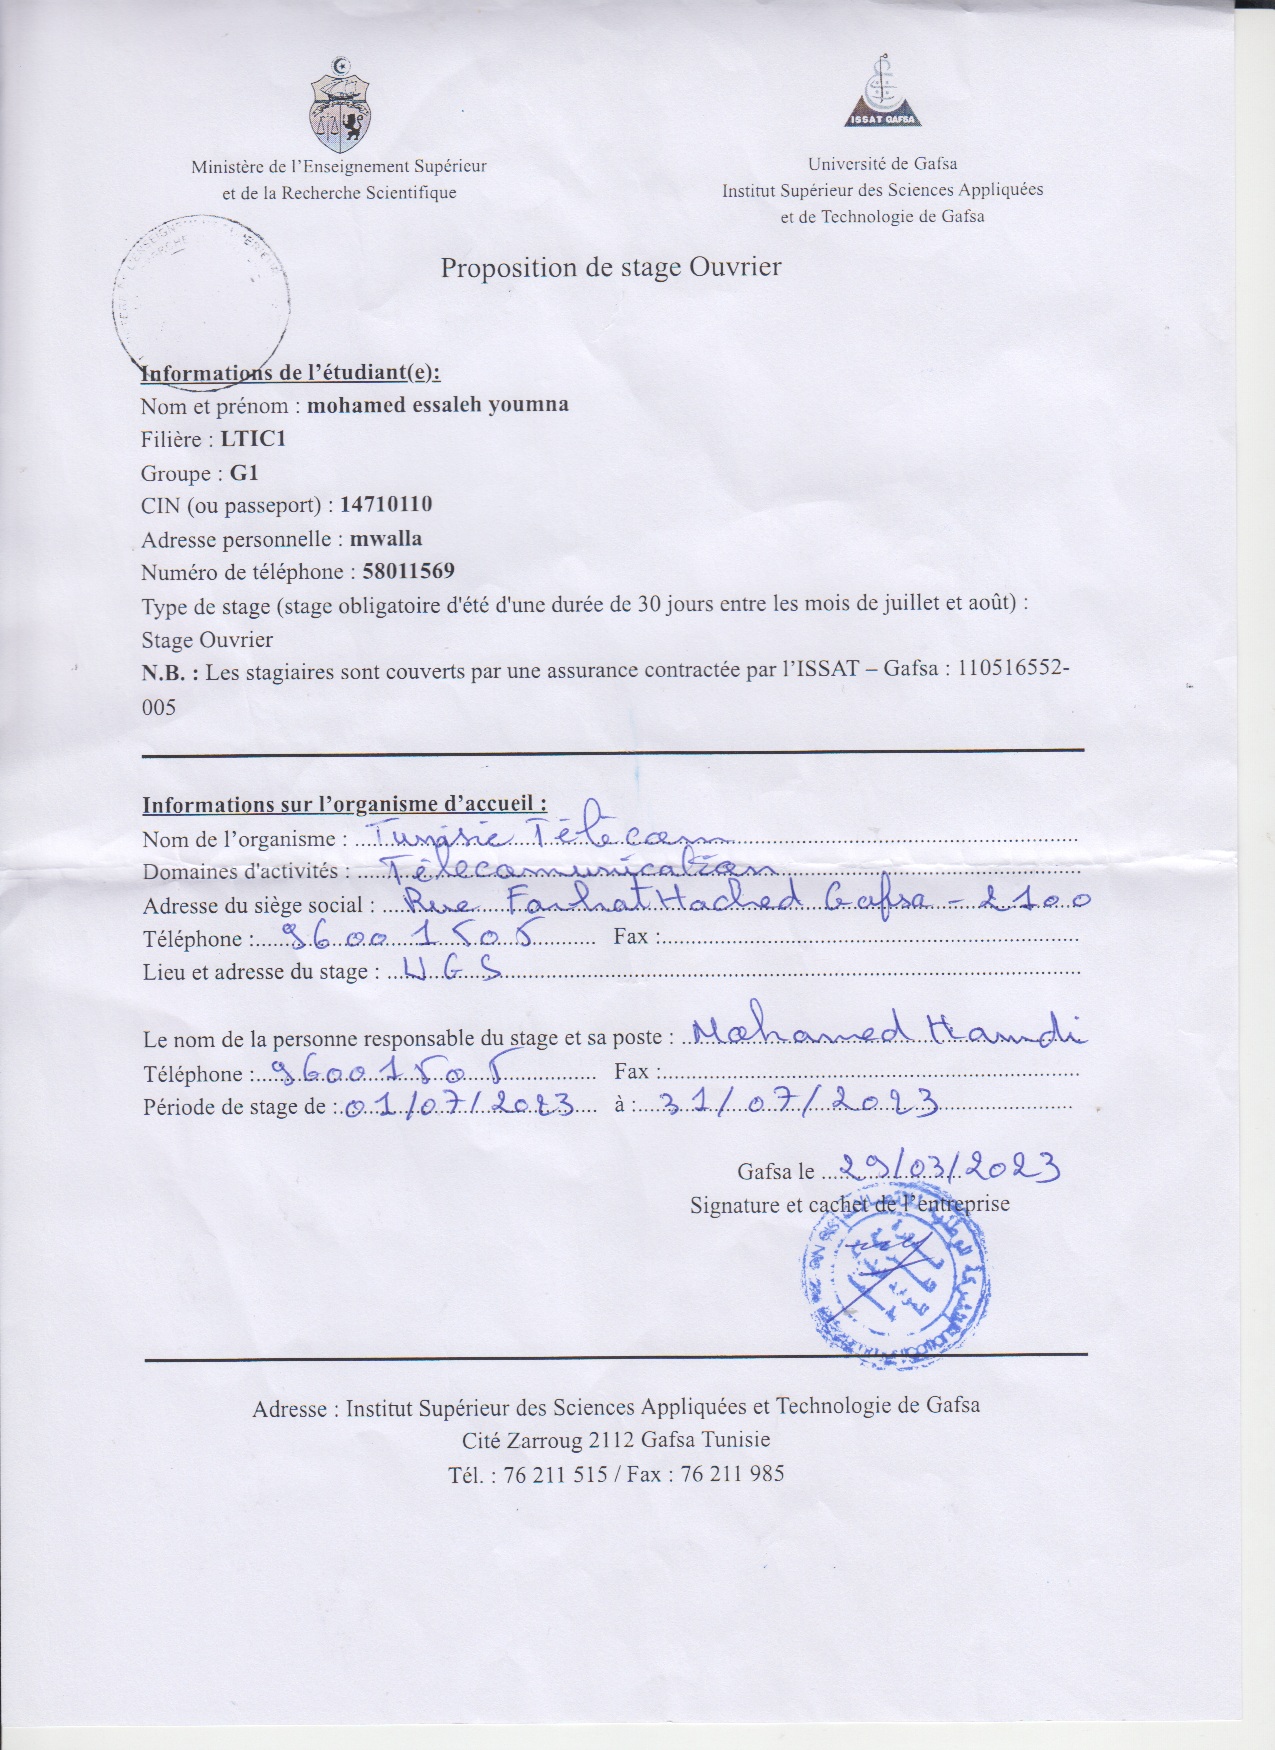 ISSAT GAFSA
Ministère de l'Enseignement Supérieur
et de la Recherche Scientifique
Université de Gafsa
Institut Supérieur des Sciences Appliquées
et de Technologie de Gafsa
Proposition de stage Ouvrier
Informations de l'étudiant(e):
Nom et prénom : mohamed essaleh youmna
Filière : LTIC1
Groupe : G1
CIN (ou passeport) : 14710110
Adresse personnelle : mwalla
Numéro de téléphone : 58011569
Type de stage (stage obligatoire d'été d'une durée de 30 jours entre les mois de juillet et août) :
Stage Ouvrier
N.B. : Les stagiaires sont couverts par une assurance contractée par l'ISSAT – Gafsa : 110516552-
005
Informations sur l'organisme d'accueil :
Nom de l'organisme : Tunisie Télécom
Domaines d'activités : Télécomunication
Adresse du siège social : Rue Farhat Hached Gafsa - 2100
Téléphone : 96001505 Fax :
Lieu et adresse du stage : UGS
Le nom de la personne responsable du stage et sa poste : Mohamed Hamdi
Téléphone : 96001505 Fax :
Période de stage de : 01/07/2023 à : 31/07/2023
Gafsa le 29/03/2023
Signature et cachet de l'entreprise
Adresse : Institut Supérieur des Sciences Appliquées et Technologie de Gafsa
Cité Zarroug 2112 Gafsa Tunisie
Tél. : 76 211 515 / Fax : 76 211 985